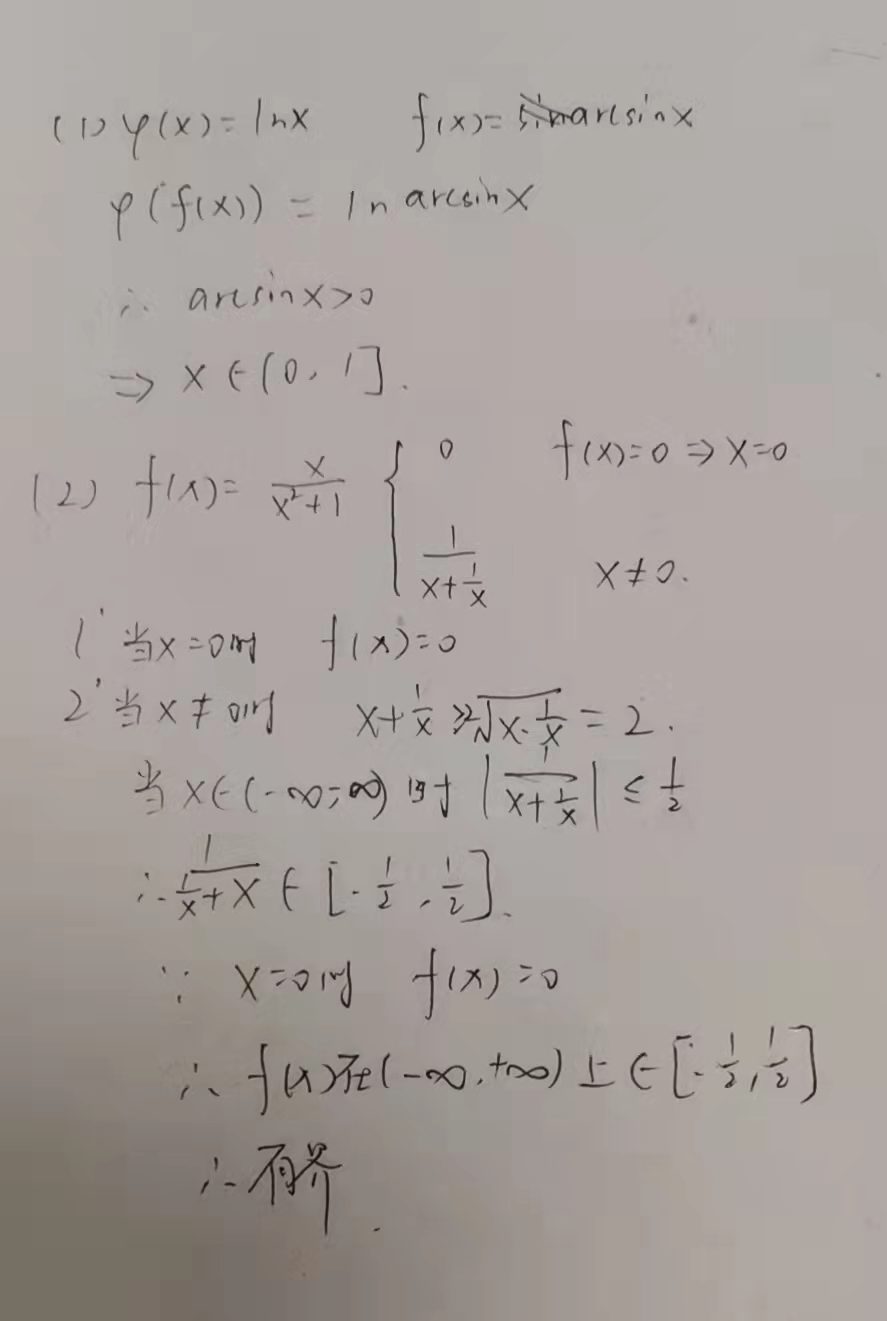 (1) φ(x)=lnx f(x)=arcsinx
φ(f(x)) = ln arcsinx
∴ arcsinx>0
⇒ x∈(0,1].
(2) f(x)= x/(x²+1) { 0 f(x)=0⇒x=0
1/(x+1/x) x≠0.
1° 当x=0时 f(x)=0
2° 当x≠0时 x+1/x ≥2√(x·1/x) = 2.
当x∈(-∞,∞)时 |1/(x+1/x)| ≤ 1/2
∴ 1/(1/x+x) ∈ [-1/2,1/2].
∵ x=0时 f(x)=0
∴ f(x)在(-∞,+∞)上∈[-1/2,1/2]
∴有界.